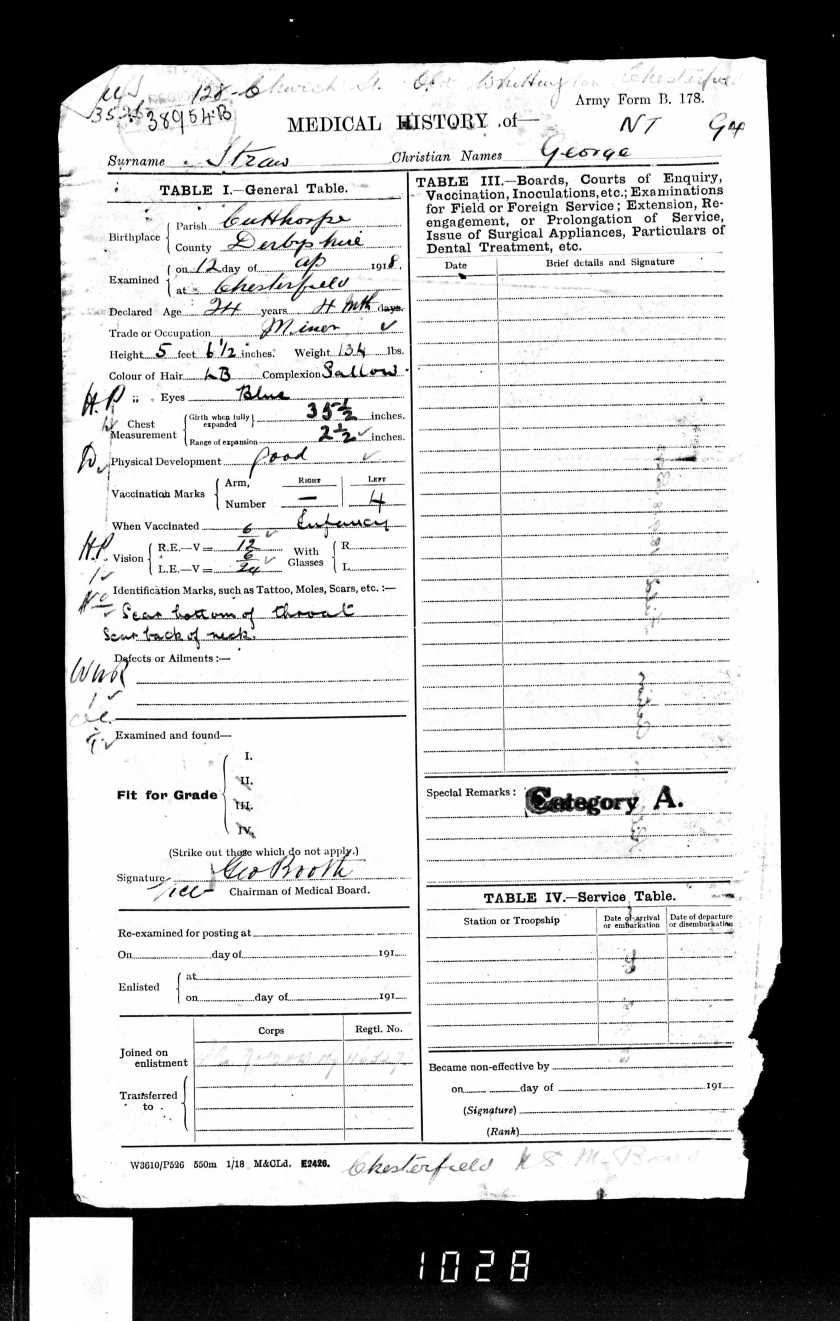 128 Church St. Old Whittington Chesterfield
Army Form B. 178.
38954B
MEDICAL HISTORY of—
NT
Surname Straw Christian Names George
TABLE I.—General Table.
Birthplace { Parish Cutthorpe
County Derbyshire
Examined { on 12 day of ap 1918.
at Chesterfield
Declared Age 24 years 4 mth days.
Trade or Occupation Miner ✓
Height 5 feet 6 1/2 inches. Weight 134 lbs.
Colour of Hair LB Complexion Sallow
H.P
„ Eyes Blue
Chest Measurement { Girth when fully expanded } 35 1/2 inches.
Range of expansion 2 1/2 ✓ inches.
Physical Development good ✓
Vaccination Marks { Arm, RIGHT LEFT
Number — 4
When Vaccinated Infancy
H.P.
Vision { R.E.—V= 6/12 ✓ With Glasses { R
L.E.—V= 6/24 ✓ L
Identification Marks, such as Tattoo, Moles, Scars, etc. :—
Scar bottom of throat
Scar back of neck.
Defects or Ailments :—
Examined and found—
Fit for Grade { I.
II.
III.
IV.
(Strike out those which do not apply.)
Signature Geo Booth
Chairman of Medical Board.
Re-examined for posting at
On day of 191
Enlisted { at
on day of 191
Corps Regtl. No.
Joined on enlistment
Transferred to
W3610/P526 550m 1/18 M&CLd. E2426.
Chesterfield
TABLE III.—Boards, Courts of Enquiry,
Vaccination, Inoculations, etc.; Examinations
for Field or Foreign Service; Extension, Re-
engagement, or Prolongation of Service,
Issue of Surgical Appliances, Particulars of
Dental Treatment, etc.
Date Brief details and Signature
Special Remarks :
Category A.
TABLE IV.—Service Table.
Station or Troopship Date of arrival or embarkation Date of departure or disembarkation
Became non-effective by
on day of 191
(Signature)
(Rank)
1028